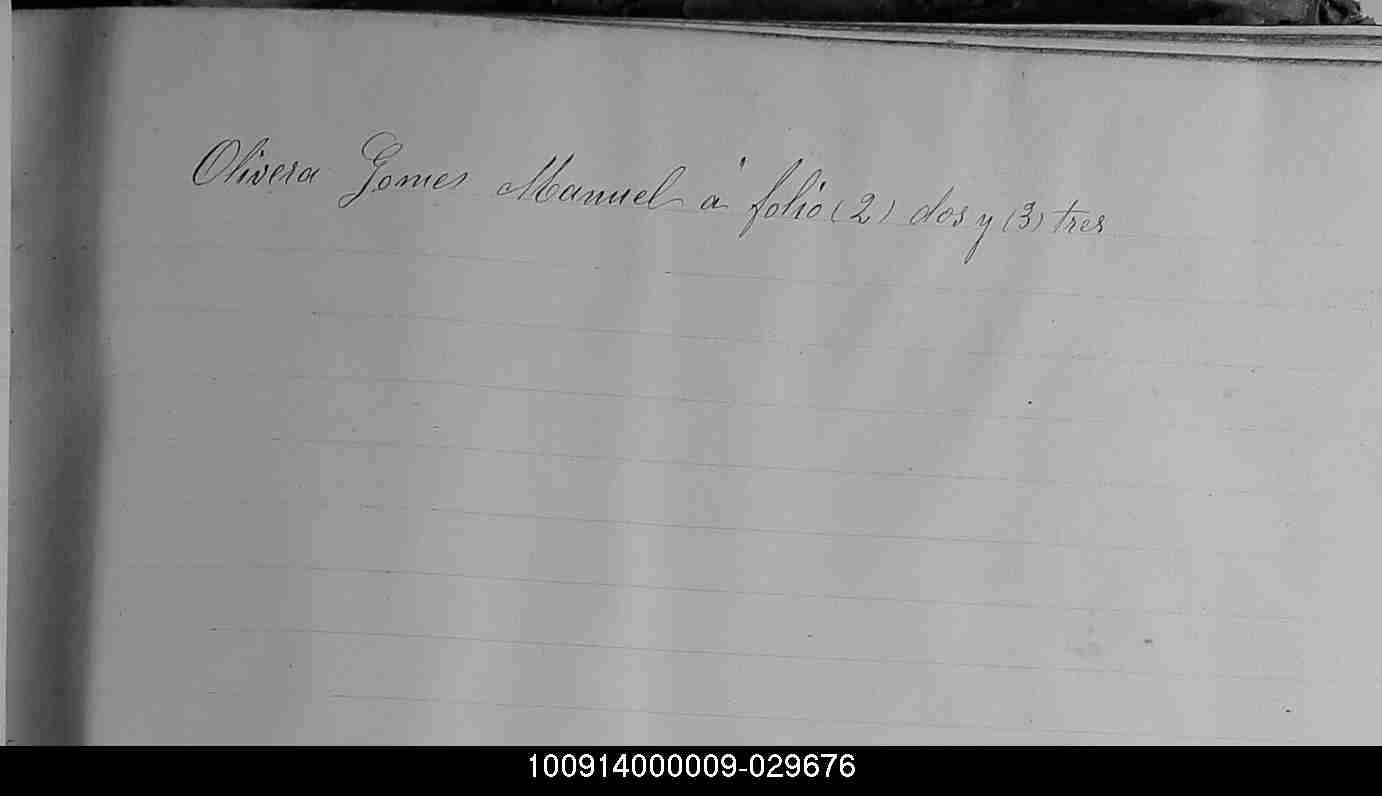 Olivera Gomes Manuel á folio (2) dos y (3) tres
100914000009-029676